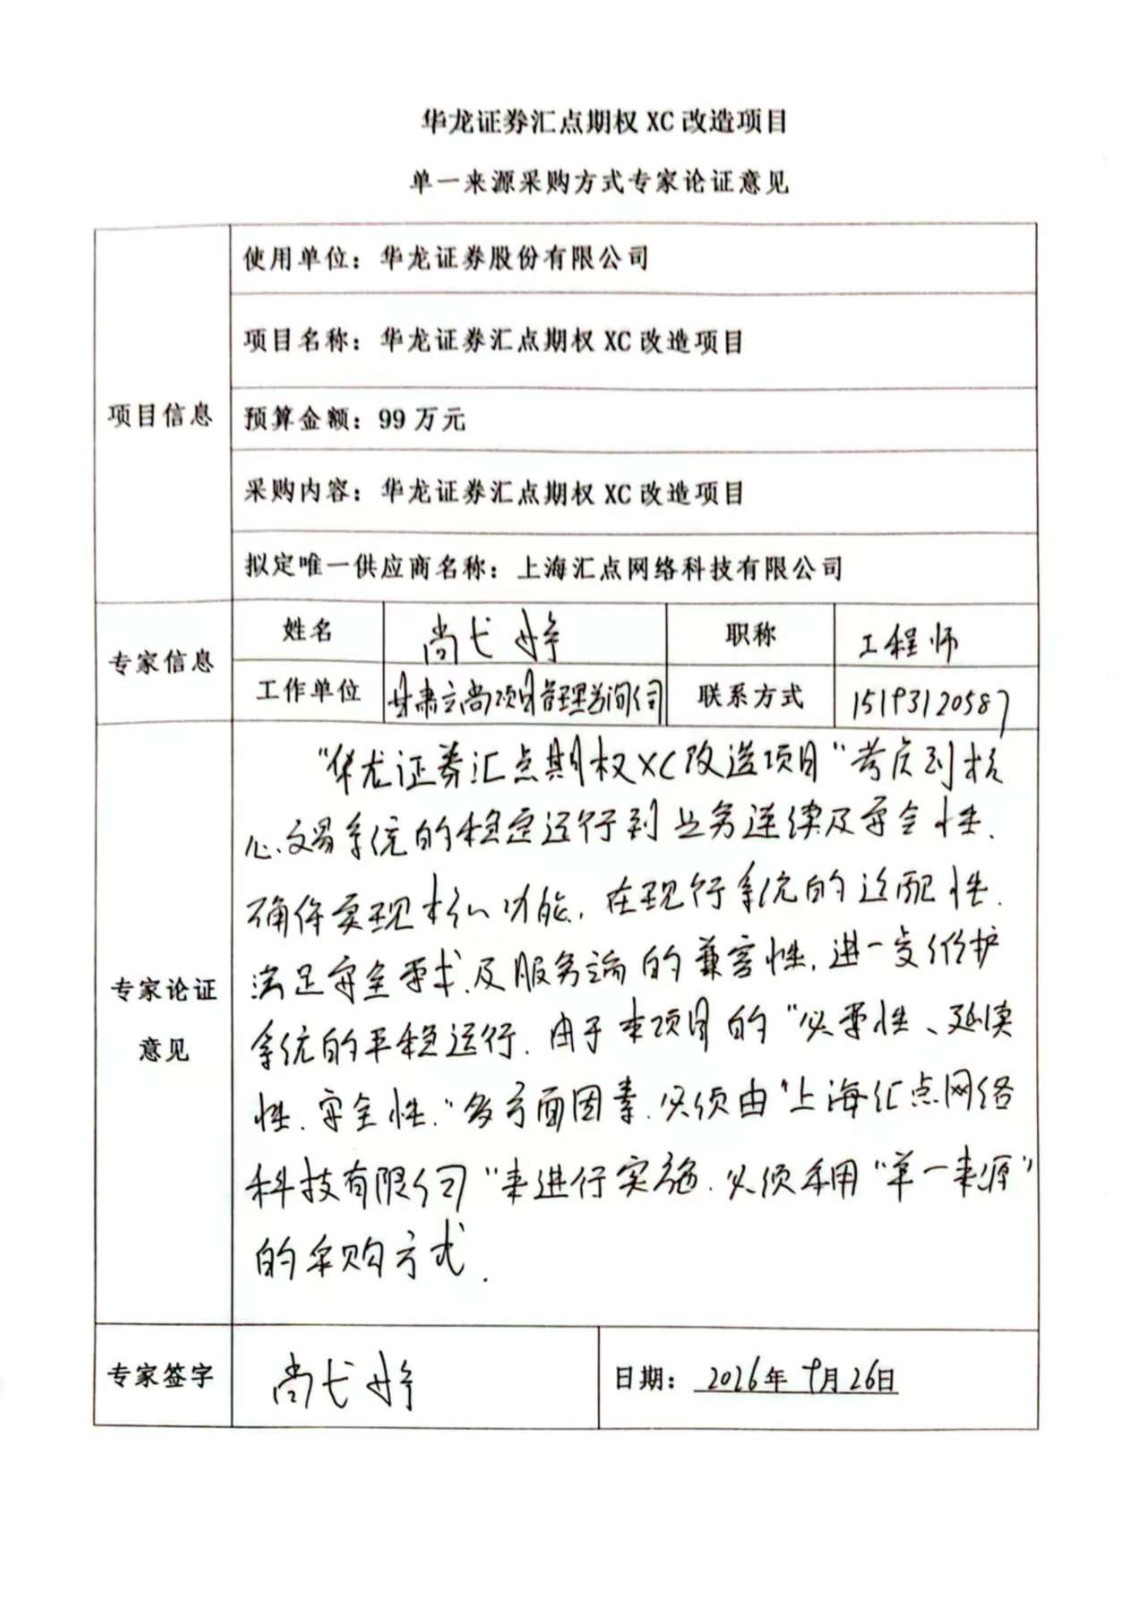 华龙证券汇点期权 XC 改造项目
单一来源采购方式专家论证意见
项目信息
使用单位：华龙证券股份有限公司
项目名称：华龙证券汇点期权 XC 改造项目
预算金额：99 万元
采购内容：华龙证券汇点期权 XC 改造项目
拟定唯一供应商名称：上海汇点网络科技有限公司
专家信息
姓名 尚弋婷 职称 工程师
工作单位 甘肃立尚项目管理咨询公司 联系方式 15193120587
专家论证
意见
“华龙证券汇点期权XC改造项目”考虑到核
心交易系统的稳定运行到业务连续及安全性、
确保实现核心功能，在现行系统的适配性、
满足安全要求、及服务端的兼容性，进一步维护
系统的平稳运行．由于本项目的“必要性、延续
性、安全性、”多方面因素．必须由“上海汇点网络
科技有限公司”来进行实施．必须采用“单一来源”
的采购方式．
专家签字 尚弋婷 日期：2026年 9月26日